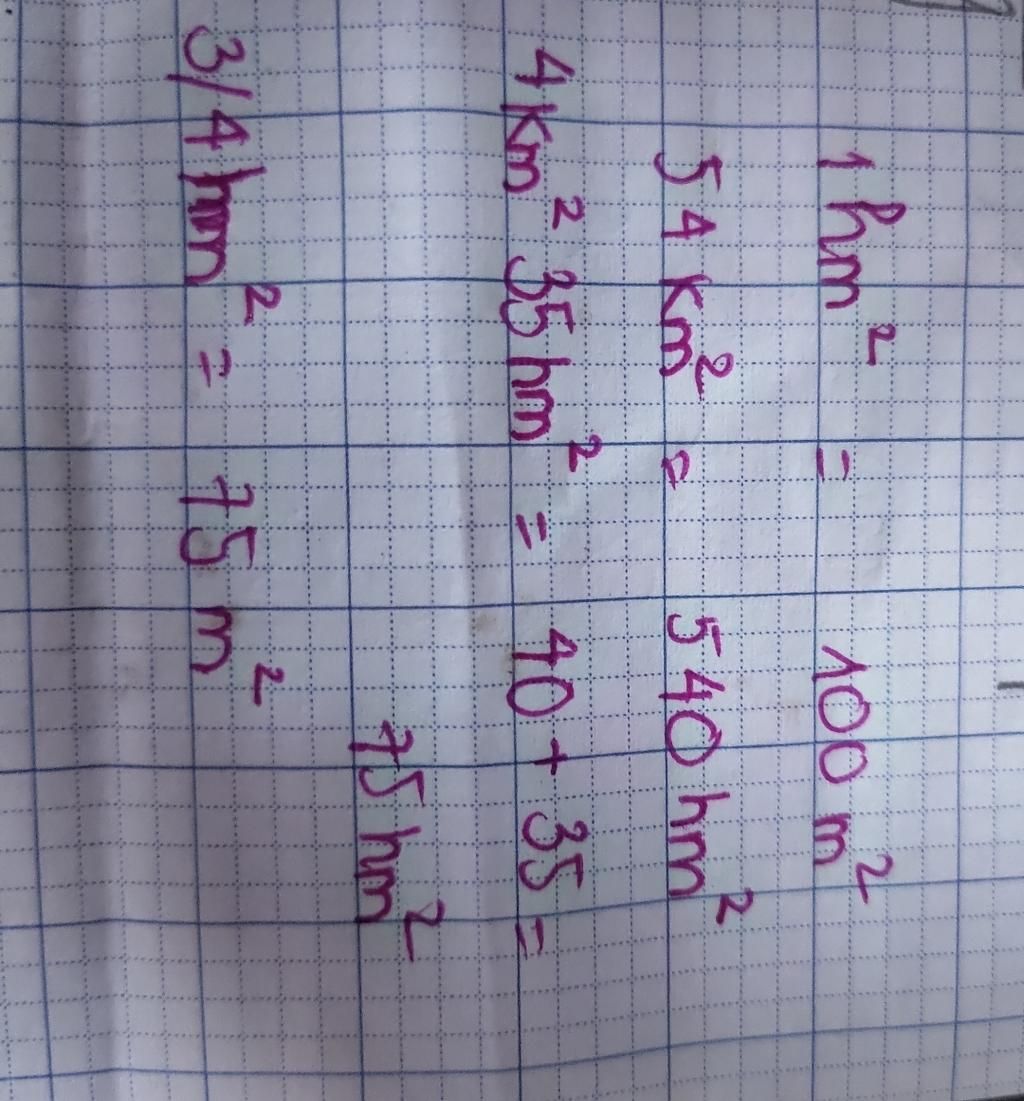 1 hm² = 100 m²
54 km² = 540 hm²
4 km² 35 hm² = 40 + 35 =
75 hm²
3/4 hm² = 75 m²